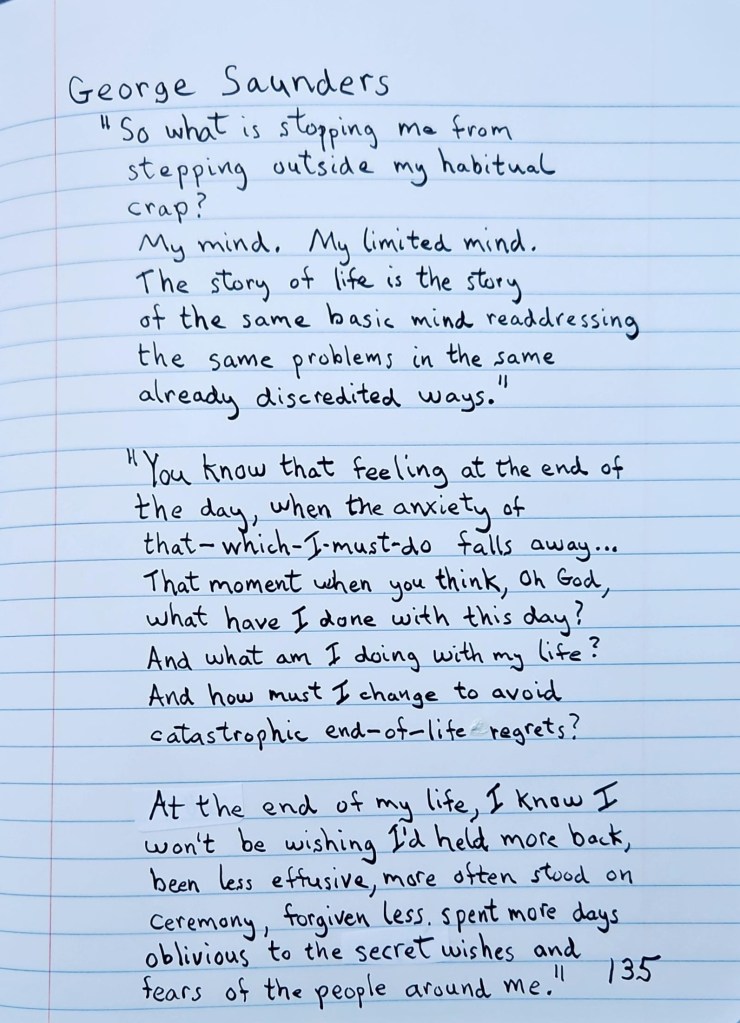 George Saunders
"So what is stopping me from
stepping outside my habitual
crap?
My mind. My limited mind.
The story of life is the story
of the same basic mind readdressing
the same problems in the same
already discredited ways."
"You know that feeling at the end of
the day, when the anxiety of
that-which-I-must-do falls away...
That moment when you think, Oh God,
what have I done with this day?
And what am I doing with my life?
And how must I change to avoid
catastrophic end-of-life regrets?
At the end of my life, I know I
won't be wishing I'd held more back,
been less effusive, more often stood on
ceremony, forgiven less, spent more days
oblivious to the secret wishes and
fears of the people around me." 135